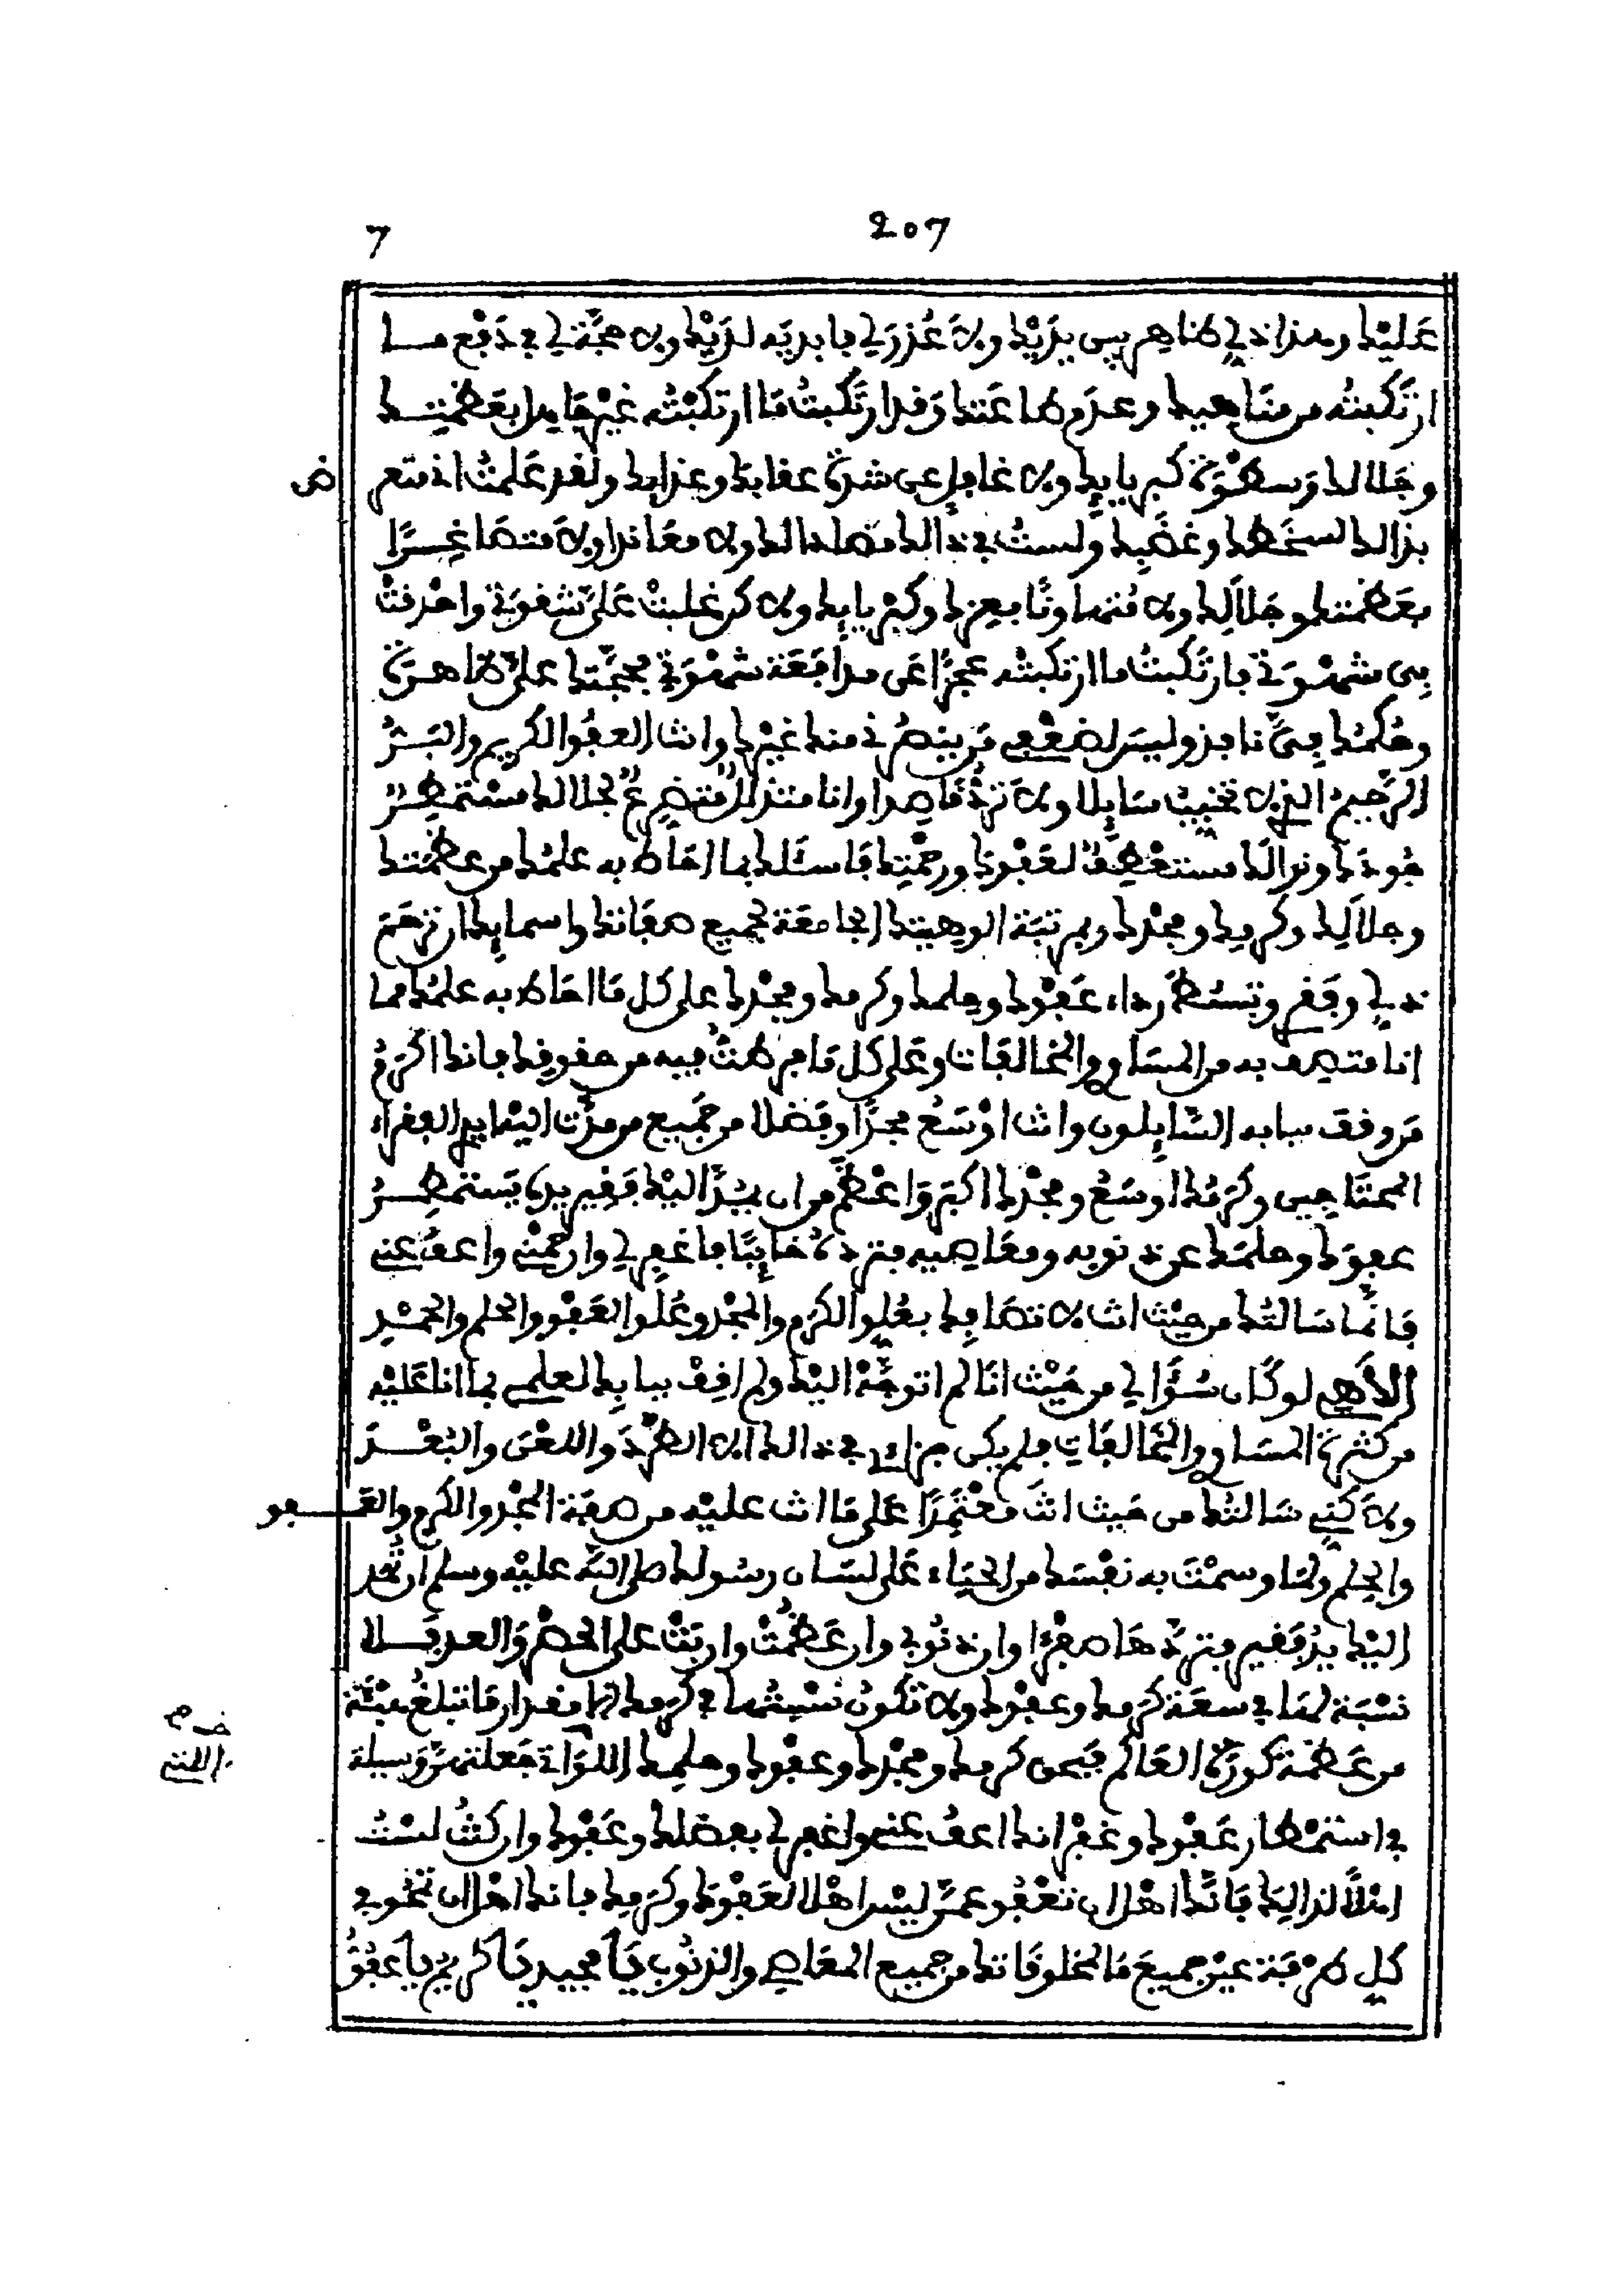 207
7
عَلَيْكَ وهذا ذلي ظاهر بين يَدَيْكَ ولاَ عُذْرَ لي فابديه لَدَيْكَ ولا حجَّة لي في دَفْع ما
ارْتَكبتُه من مَنَاهيك وعدم طاعَتك وَقد ارْتَكبتُ مَا ارتكبْتُه غيْر جَاهل بعَظَمتك
وجَلالك وَسطْوَة كبريائك ولا غافل عن شدة عقابك وعذابك ولقد عَلمتُ اني متعرض
بذالك لسخَطك وغضَبك ولَستُ في ذالك مضادا لك ولا معَاندا ولاَ متصَاغِرًا
بعَظمتك وجَلاَلِك ولا مُتهاونًا بعِزك وكبْريائك ولاكن غلبتْ عَلَيَّ شقوتي واحْدقتْ
بي شهْوتي فارتَكبتُ ما ارْتكبتُه عجزًا عَن مدافَعَة شهْوَتي فحجَّتك عليَّ ظاهرة
وحُكمُك فيَّ نافذ وليسَ لضَعْفي مَن ينصرُني منك غيْرك وانت العفُوُّ الكريم والبَرُّ
الرَّحيم الذي لا تخيب سَايلا ولا تردُّ قاصدا وانا متذللٌ لكَ متضرعٌ لجلالك مسْتمطرٌ
جُودَك ونوالَك مستعْطِفٌ لعَفْوك ورحْمتِك فَاسئلك بما احَاط به علمُك من عظمَتك
وجلاَلِك وكرمِك ومجْدِك وبمرتبَة الوهيتك الجامعَة لجميع صفاتك واسمايِك ان ترحَمَ
ذلي وفقري وتبسُط رداء عَفْوك وحلمك وكرمك ومجْدك على كل مَا احَاط به علمُك مما
انا متصف به من المسَاوي والمخالفَات وعَلى كل مَا فرطتُ فيه من حقوقِك فانك اكرَمُ
مَن وقف ببابه السَّايِلون وانت اوْسَعُ مجدًا وفَضلا من جَميع من مدَّت اليْه ايدي الفقراء
المحتَاجين وكرَمُك اوسَعُ ومجْدك اكبَرُ وَاعْظم من ان يمُدَّ اليْك فَقير يدهُ يَستمطِرُ
عفوَك وحلمَك عن ذنوبه ومعَاصيه فتردهُ خايبًا فاغفر لي وارحمْني واعفُ عني
فَانَّما سَالتُك من حيْث انت لا تصَافِك بعُلو الكرَم والمجْد وعُلُو العَفْو والحلم والحمْد
الاَهي لو كَان سُؤالي من حَيْث انَا لم اتوجَّهْ اليْك ولم اقِفْ ببابِك لعلمي بما انا عَليْه
من كثرة المسَاوي والمخَالفَات فلم يكن جزاءي في ذالك الا الطَّرْدَ واللعْنَ والبُعْدَ
ولاَكني سَالتُك من حَيث انتَ معْتَمِدًا عَلى مَا انت عليْه من صفَة المجْد والكرم والعَفو
والحِلم ولمَا وسمْتَ به نفْسَك من الحيَاء عَلى لسَان رسُولك صلى الله عليْه وسلم ان تُمَد
اليْك يَدُ فَقير فتردَّهَا صفْرا وان ذنُوبي وان عَظُمتْ واربَتْ على الحصْر وَالعد فلا
نسْبَة لهَا في سعَة كرَمك وعفوك ولا تكُون نسْبتُها في كرَمك مقدار مَا تبلغُ هَبْئَة
من عَظمَة كورة العَالم فبحق كرمك ومجْدك وعفْوك وحلمِك اللوَاتي جَعلتهنَّ وَسيلة
في استمْطار عَفْوك وغفْرانك اعفُ عني واغفر لي بفضلك وعَفْوك وان كنتُ لستُ
اهْلاً لذالِك فَانَّك اهْل ان تعْفُو عمَّن ليْس اهْلا لعَفْوك وكرَمِك فانك اهْل ان تمْحُو في
كل طرْفَة عين جميعَ مَا لمخلوقَاتك من جميع المعَاصي والذنُوب يَا مجيد يَا كريم يا عَفُوُّ